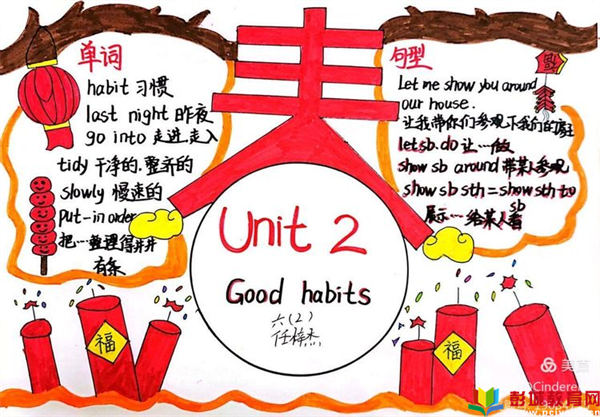 单词
habit 习惯
last night 昨夜
go into 走进.走入
tidy 干净的.整齐的
slowly 慢速的
put-in order
把…整理得井井
有条
春
Unit 2
Good habits
六(2)
句型
Let me show you around
our house.
让我带你们参观下我们的家
let sb. do 让…做
show sb around 带某人参观
show sb sth = show sth to
sb
展示…给某人看
福
福
美篇
彭城教育网